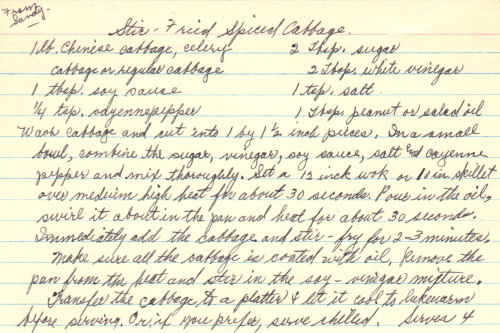 From
Sandy
Stir-Fried Spiced Cabbage.
1 lb. Chinese cabbage, celery 2 Tbsp. sugar
cabbage or regular cabbage 2 Tbsp. white vinegar
1 tbsp. soy sauce 1 tsp. salt
1/4 tsp. cayenne pepper 1 Tbsp. peanut or salad oil
Wash cabbage and cut into 1 by 1 1/2 inch pieces. In a small
bowl, combine the sugar, vinegar, soy sauce, salt and cayenne
pepper and mix thoroughly. Set a 12 inch wok or 10 in skillet
over meduim high heat for about 30 seconds. Pour in the oil,
swirl it about in the pan and heat for about 30 seconds.
Immediately add the cabbage and stir-fry for 2-3 minutes.
Make sure all the cabbage is coated with oil, Remove the
pan from the heat and stir in the soy-vinegar mixture.
Transfer the cabbage to a platter & let it cool to lukewarm
before serving. Or, if you prefer, serve chilled. Serves 4